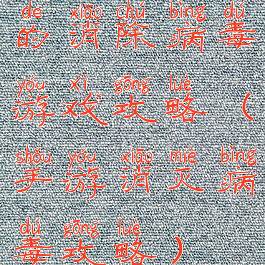 de xiāo chú bìng dú
的消除病毒
yóu xì gōng lüè
游戏攻略（
shǒu yóu xiāo miè bìng
手游消灭病
dú gōng lüè
毒攻略）